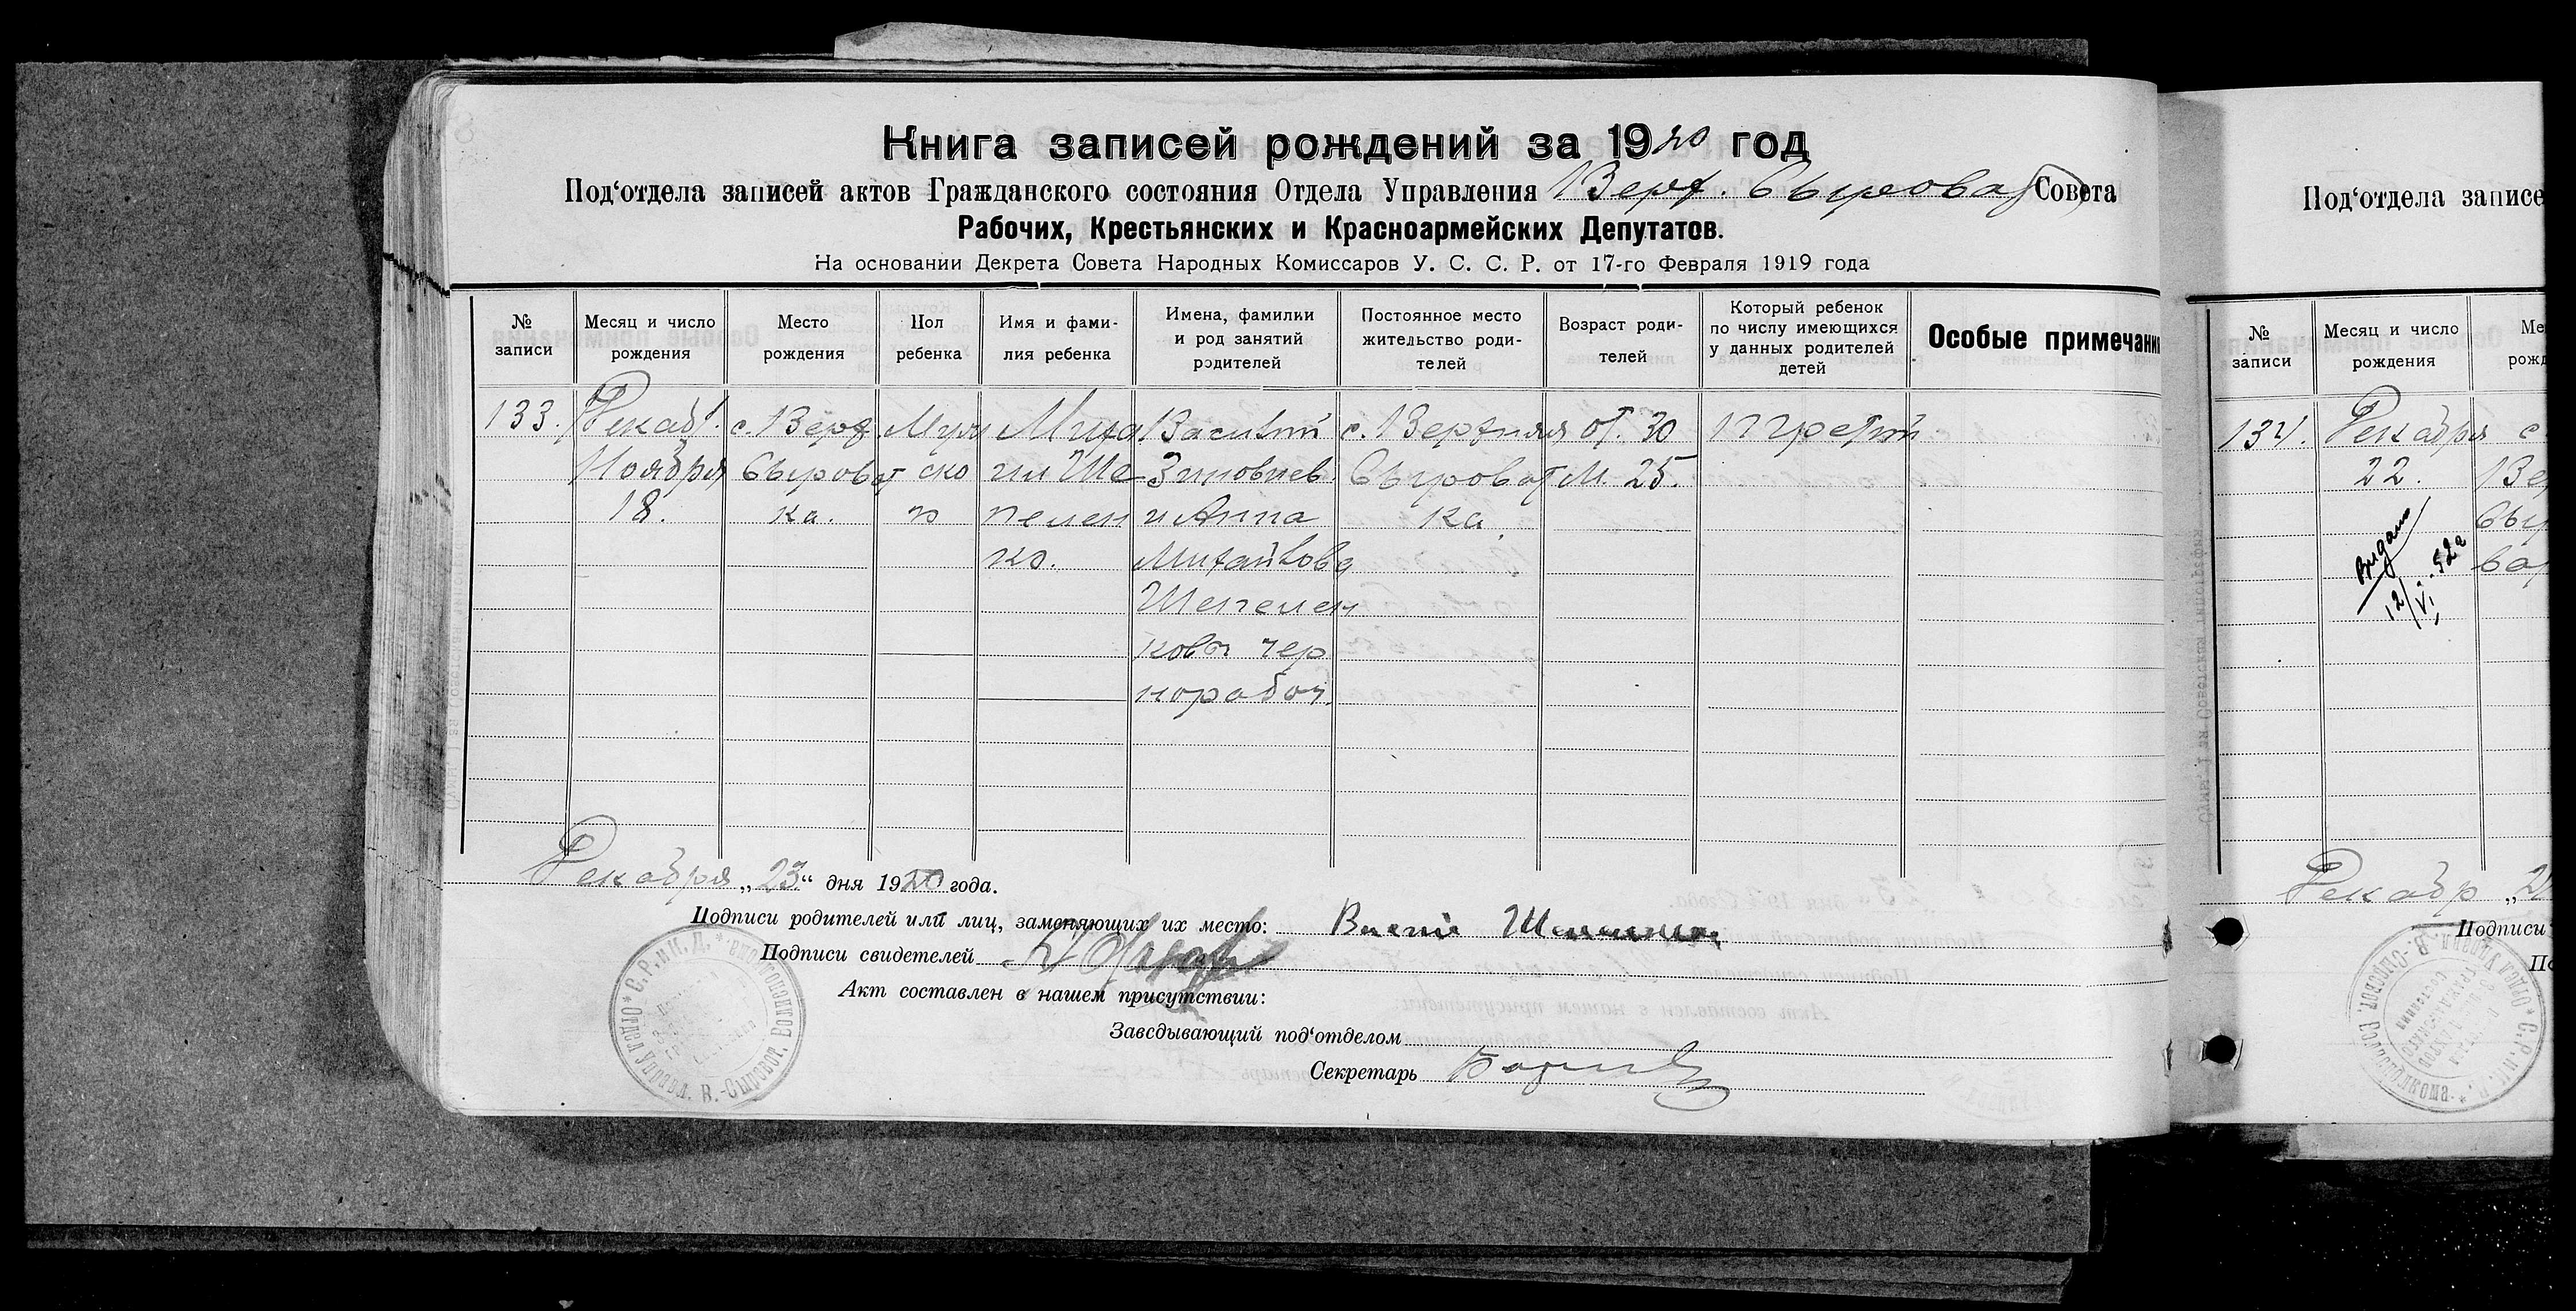 Книга записей рождений за 1920 год
Под'отдела записей актов Гражданского состояния Отдела Управления Верх. Сыроват Совета
Рабочих, Крестьянских и Красноармейских Депутатов.
На основании Декрета Совета Народных Комиссаров У. С. С. Р. от 17-го Февраля 1919 года
№ записи
Месяц и число рождения
Место рождения
Пол ребенка
Имя и фами-
лия ребенка
Имена, фамилии
и род занятий
родителей
Постоянное место
жительство роди-
телей
Возраст роди-
телей
Который ребенок
по числу имеющихся
у данных родителей
детей
Особые примечани
133.
Декаб.
Ноября
18.
с. Верх.
Сыроват
ка.
Муж
ско
го
Миха
ил Ше
пелен
ко.
Василий
Зиновиев.
и Анна
Михайлова
Шепелен
ковы чер
норабоч.
с. Верхняя
Сыроват
ка.
От. 30
М. 25.
третий
Декабря „23“ дня 1920 года.
Подписи родителей или лиц, заменяющих их место:
Подписи свидетелей
Акт составлен в нашем присутствии:
Заведывающий под'отделом
Секретарь
Отдел Управл. В.-Сыроват. Волисполкома. * С. Р. и К. Д. *
Под'отдела записе
№ записи
Месяц и число
рождения
Ме
рожд
134.
Декабря
22.
с
Ве
Сы
ва
Видано
12/VI. 52 г
Декабр „2
Подписи
По
Отдел Управл. В.-Сыроват. Волисполкома. * С. Р. и К. Д. *